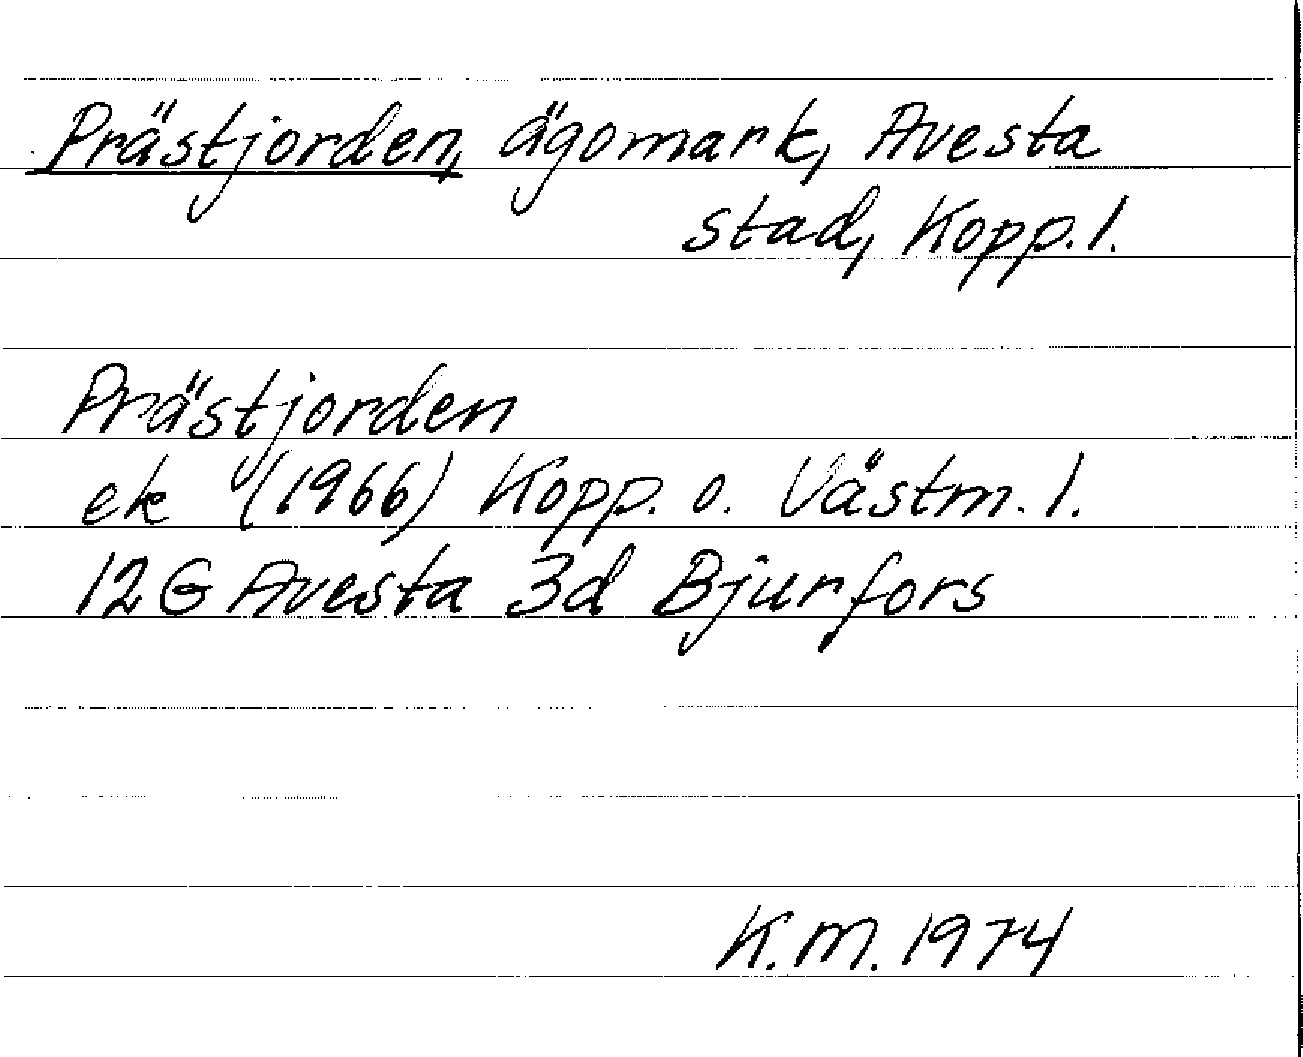 Prästjorden, ägomark, Avesta
stad, Kopp. l.
Prästjorden
ek (1966) Kopp. o. Västm. l.
12G Avesta 3d Bjurfors
K.M. 1974